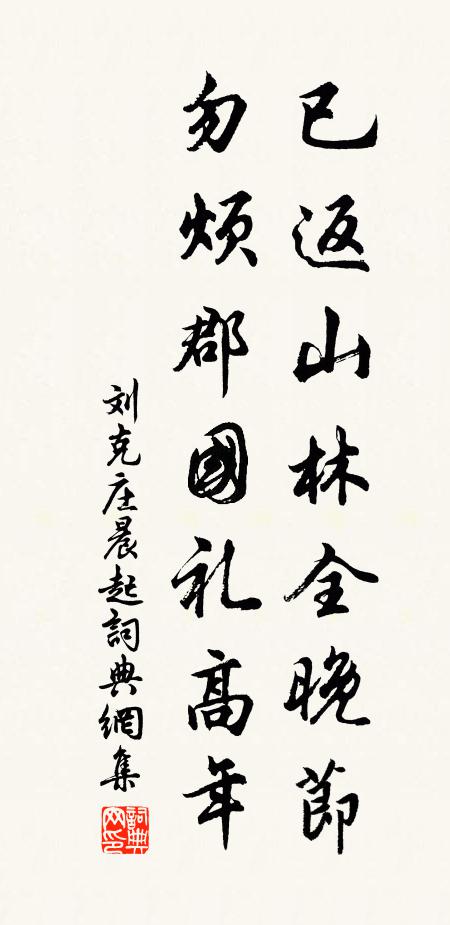 已返山林全晚節
勿煩郡國礼高年
刘克庄晨起詞典網集
詞典
网印